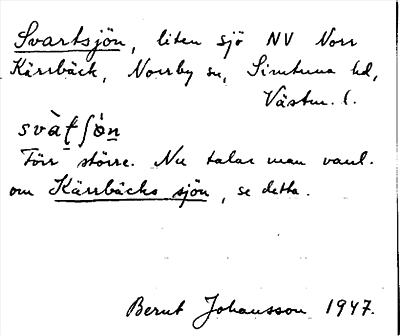 Svartsjön, liten sjö NV Norr
Kärrbäck, Norrby sn, Simtuna hd,
Västm. l.
svàt̠ʃòn̠
Förr större. Nu talar man vanl.
om Kärrbäcks sjön, se detta.
Bernt Johansson 1947.